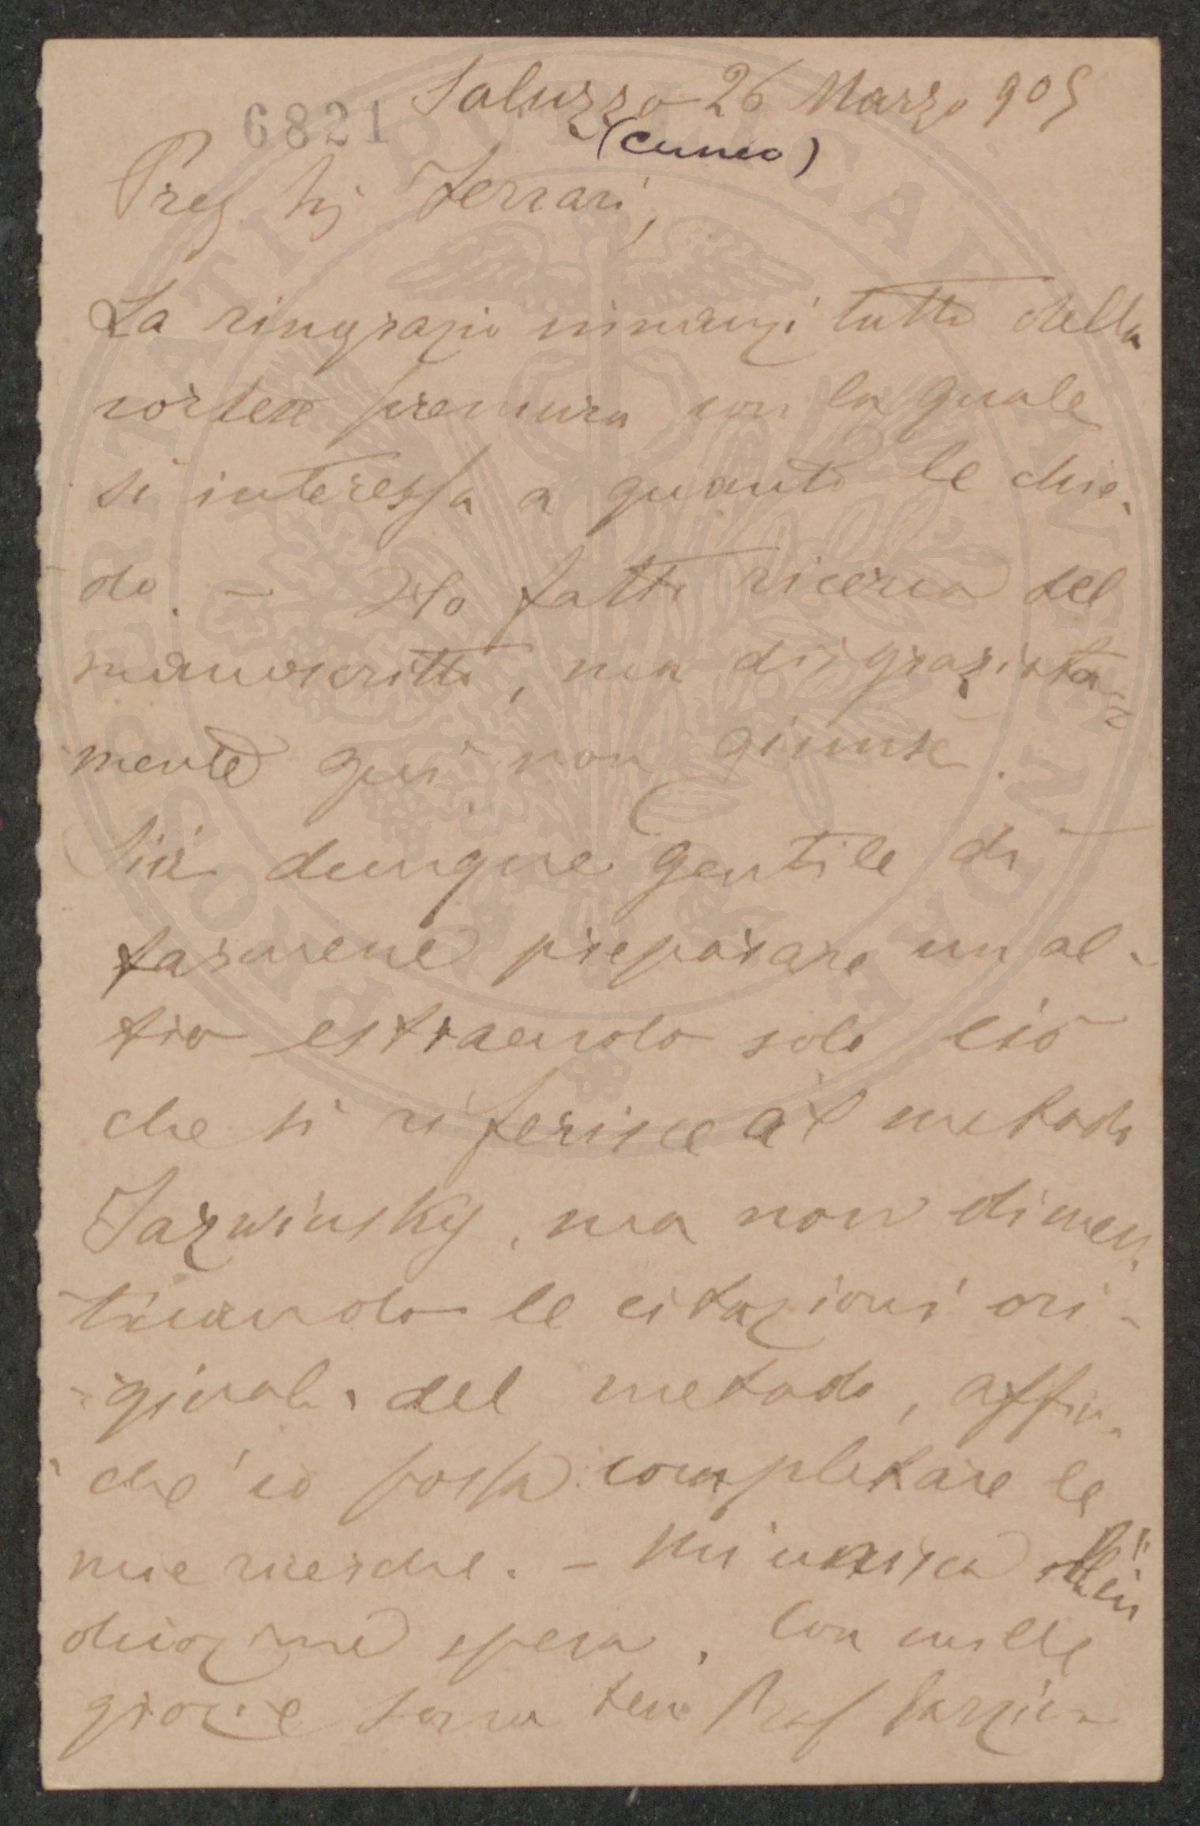 6821 Saluzzo 26 Marzo 905
(Cuneo)
Preg Sig Ferrari,
La ringrazio innanzi tutto della
cortese premura con la quale
si interessa a quanto le chie-
do. — Ho fatto ricerca del
manoscritto, ma disgraziata-
mente qui non giunse.
Sia dunque gentile di
farmene preparare un al-
tro estraendo solo ciò
che si riferisce al metodo
Jazwinsky, ma non dimen-
ticando le citazioni ori-
ginali del metodo, affin-
chè io possa completare le
mie ricerche. — Mi unisca
spesa. Con mille
grazie Prof